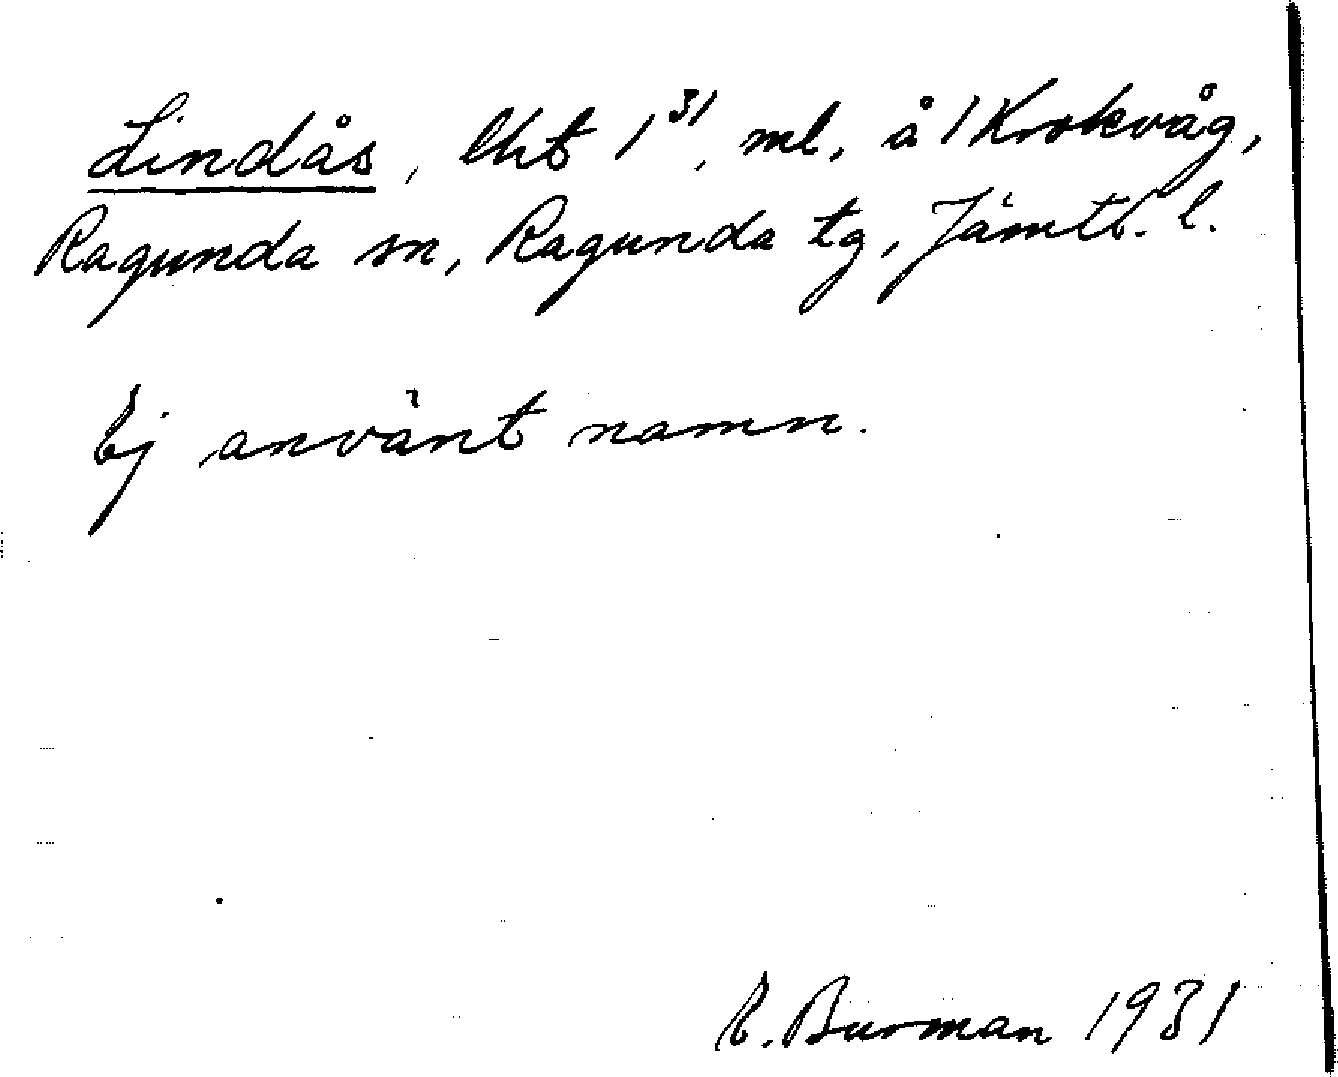 Lindås, lht 1³¹, ml. å 1 Krokvåg,
Ragunda sn, Ragunda tg, Jämtl. l.
Ej använt namn.
R. Burman 1931